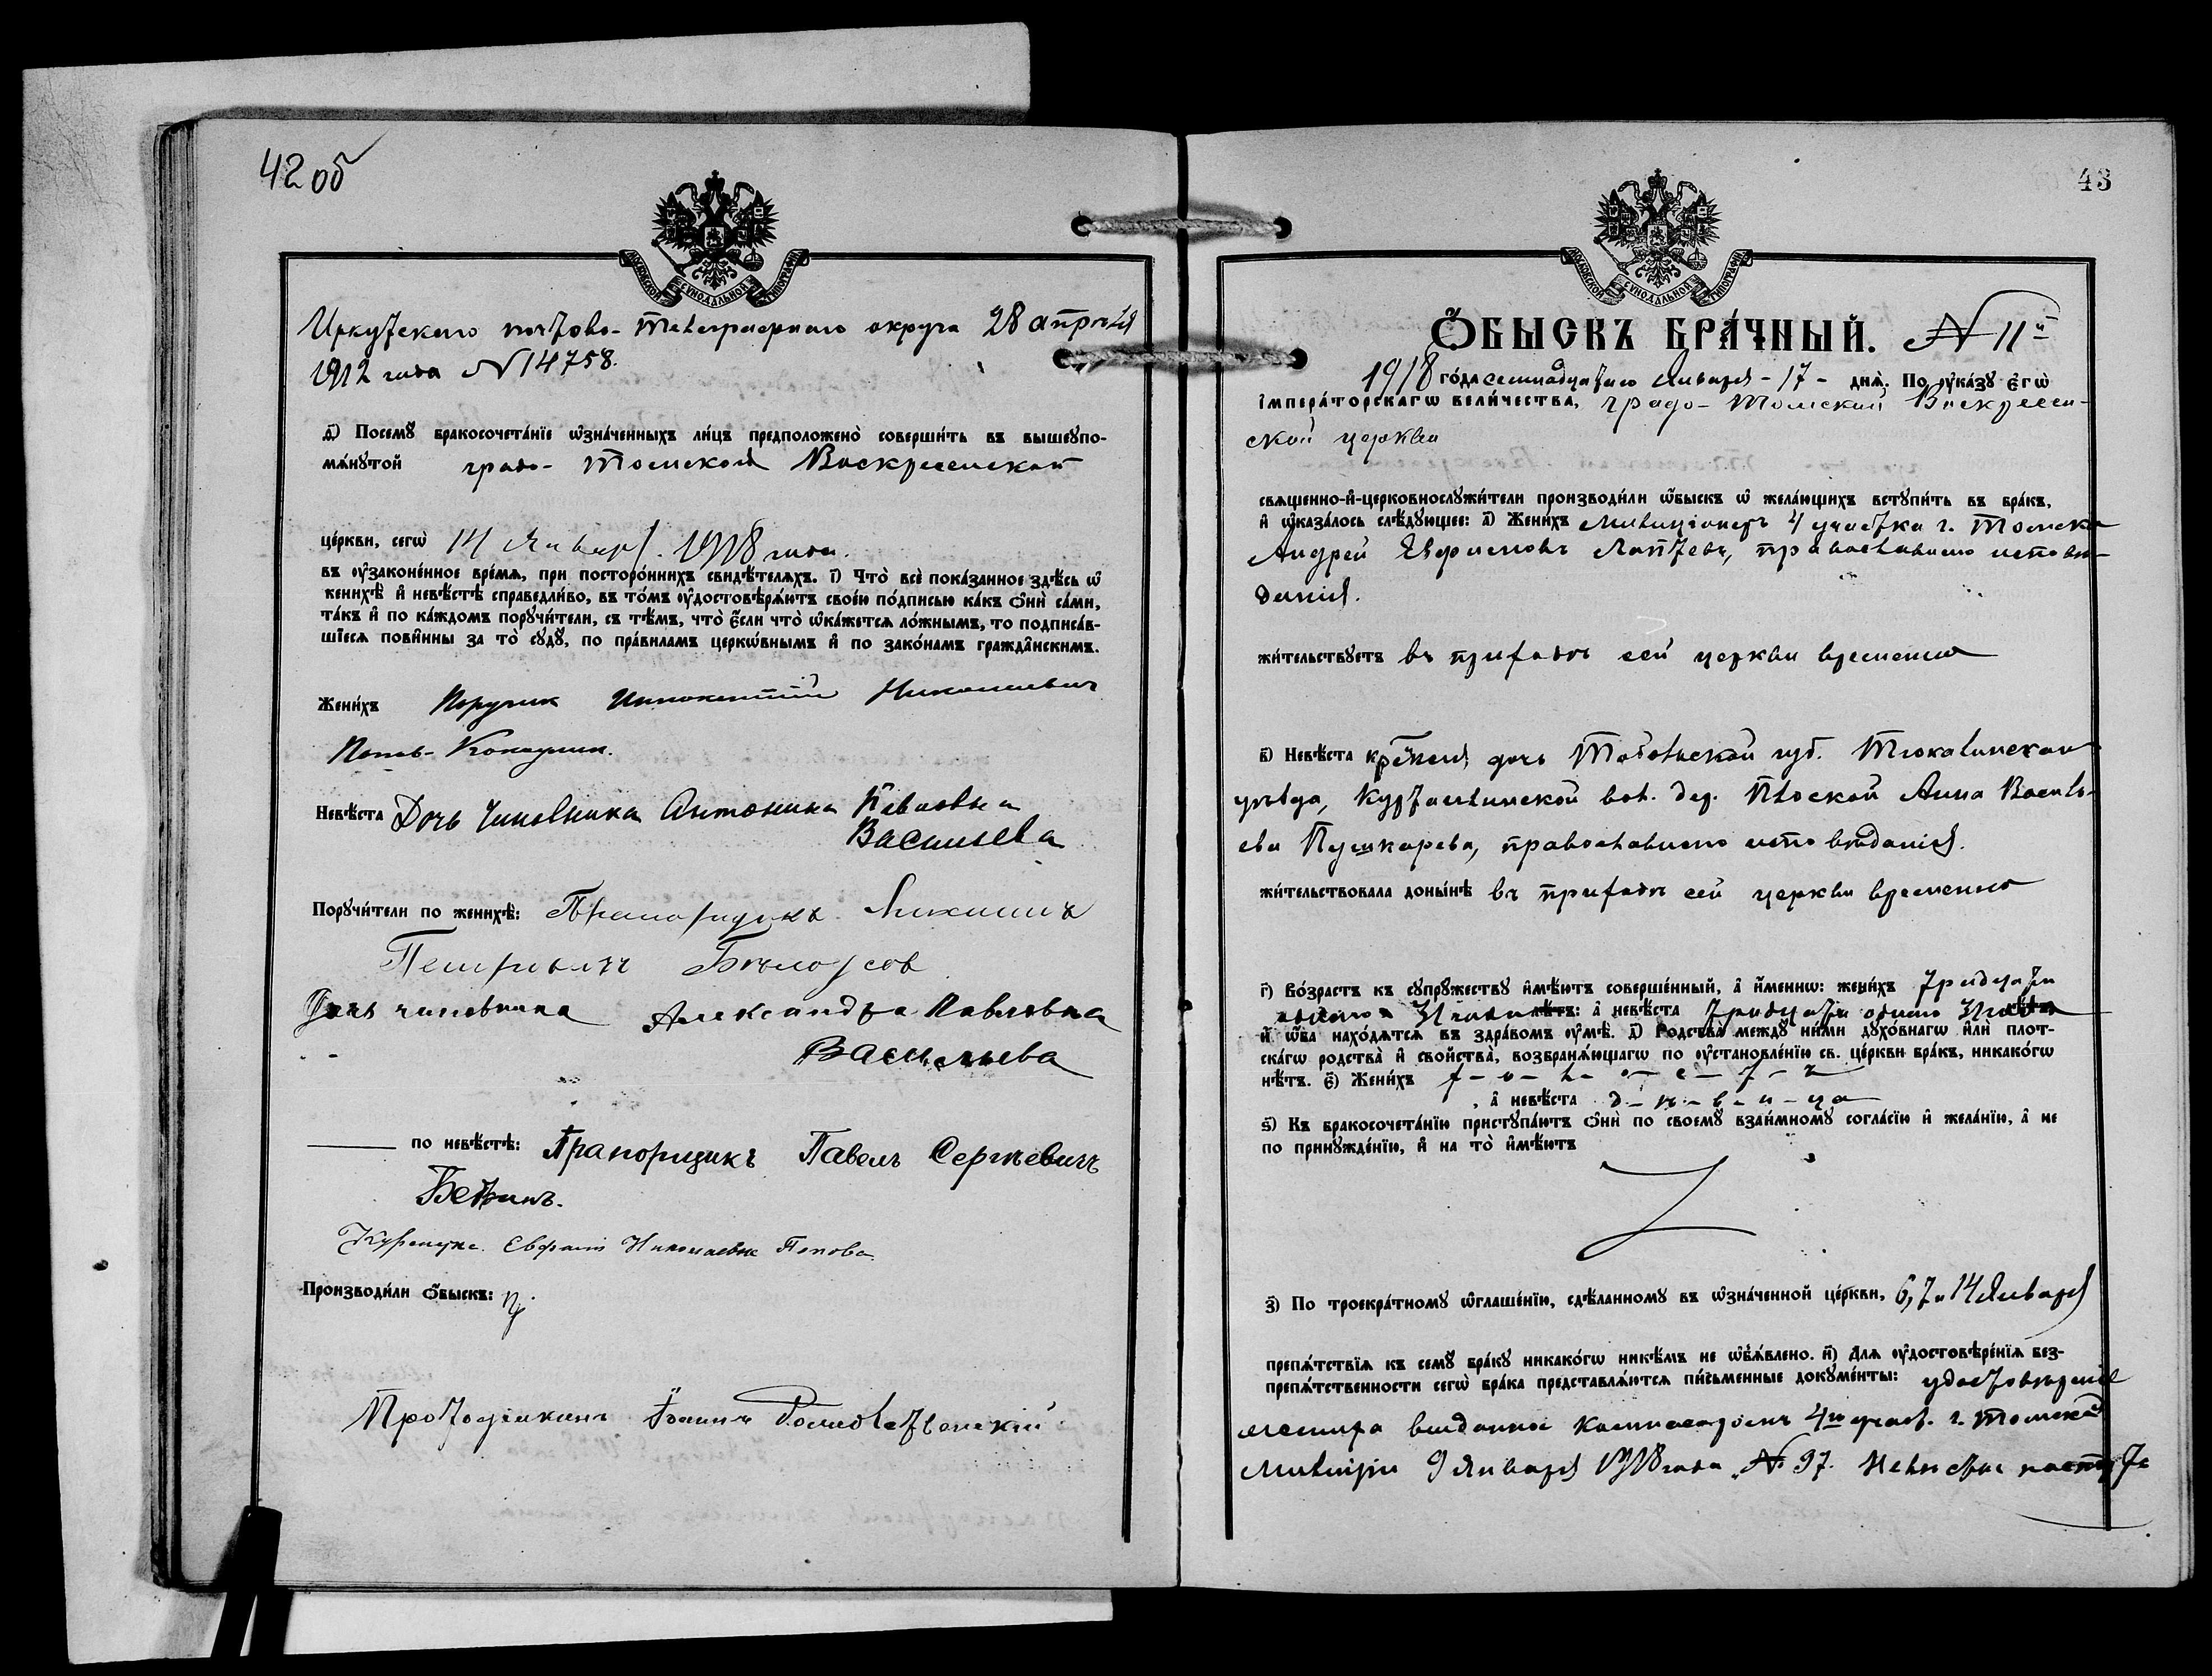 42 об
МОСКОВСКОЙ СѴНОДАЛЬНОЙ ТИПОГРАФІИ
Иркутскаго почтово-телеграфнаго округа 28 апрѣля
1912 года N 14758.
д҃) Посемꙋ бракосочета́нїе ѡ҆зна́ченныхъ ли́цъ предположено̀ соверши́ть въ вышеꙋпо-
мѧ́нꙋтой градо-Томской Воскресенской
це́ркви, сегѡ̀ 14 Января. 1918 года.
въ ᲂу҆законе́нное вре́мѧ, при посторо́ннихъ свидѣ́телѧхъ. і҃) Что̀ всѐ пока́занное здѣ́сь ѡ҆
женихѣ̀ и҆ невѣ́стѣ справедли́во, въ то́мъ ᲂу҆достовѣрѧ́ютъ свое́ю по́дписью ка́къ ѻ҆нѝ са́ми,
та́къ и҆ по ка́ждомъ порꙋчи́тели, съ тѣ́мъ, что̀ є҆́сли что̀ ѡ҆ка́жетсѧ ло́жнымъ, то подписа́в-
шїесѧ пови́нны за то̀ сꙋдꙋ̀, по пра́виламъ церко́внымъ и҆ по зако́намъ гражда́нскимъ.
Жени́хъ Поручик Иннокентий Николаевич
Попов-
Невѣ́ста Дочь Чиновника Антонина Павловна
Васильева
Порꙋчи́тели по женихѣ̀: Прапорщикъ
Петровичъ
Дочь чиновника Александра Павловна
Васильева
по невѣ́стѣ: Прапорщикъ Павелъ Сергѣевичъ
Николаевна Попова
Производи́ли ѻ҆́быскъ:
Іоаннъ
43
МОСКОВСКОЙ СѴНОДАЛЬНОЙ ТИПОГРАФІИ
Ѻ҆́БЫСКЪ БРА́ЧНЫЙ. N 11й
1918 го́да семнадцатаго Января - 17 - днѧ̀. По ᲂу҆ка́зꙋ є҆гѡ̀
і҆мпера́торскагѡ вели́чества, градо-Томской Воскресен-
ской церкви
свѧще́нно-и҆-церковнослꙋжи́тели производи́ли ѻ҆́быскъ ѡ҆ жела́ющихъ встꙋпи́ть въ бра́къ,
и҆ ѡ҆каза́лось слѣ́дꙋющее: а҃) Жени́хъ милиціонеръ 4 участка г. Томска
Андрей Лаптевъ, православнаго исповѣ-
данія.
жи́тельствꙋетъ въ приходѣ сей церкви временно
в҃) Невѣ́ста кр-ская дочь Тобольской губ. Тюкалинскаго
уѣзда, вол. дер. Плоской Анна Василь-
ева Пушкарева, православнаго исповѣданія.
жи́тельствовала доны́нѣ въ приходѣ сей церкви временно
г҃) Во́зрастъ къ сꙋпрꙋ́жествꙋ и҆мѣ́ютъ соверше́нный, а҆ и҆́меннѡ: жени́хъ тридцати
одного года лѣ́тъ: а҆ невѣ́ста тридцати одного года лѣ́тъ
и҆ ѻ҆́ба нахо́дѧтсѧ въ здра́вомъ ᲂу҆мѣ̀. д҃) Родства̀ междꙋ ни́ми дꙋхо́внагѡ и҆лѝ плот-
ска́гѡ родства̀ и҆ сво́йства, возбранѧ́ющагѡ по ᲂу҆становле́нїю св. це́ркви бра́къ, никако́гѡ
нѣ́тъ. є҃) Жени́хъ х-о-л-о-с-т-ъ
, а҆ невѣ́ста д-ѣ-в-и-ца
ѕ҃) Къ бракосочета́нїю пристꙋпа́ютъ ѻ҆нѝ по своемꙋ̀ взаи́мномꙋ согла́сїю и҆ жела́нїю, а҆ не
по принꙋжде́нїю, и҆ на то̀ и҆мѣ́ютъ
з҃) По троекра́тномꙋ ѡ҆глаше́нїю, сдѣ́ланномꙋ въ ѡ҆зна́ченной це́ркви, 6, 7 и 14 Января
препѧ́тствїѧ къ семꙋ̀ бра́кꙋ никако́гѡ никѣ́мъ не ѡ҆б̾ѧ́влено. и҃) Длѧ ᲂу҆достовѣре́нїѧ без-
препѧ́тственности сегѡ̀ бра́ка представлѧ́ютсѧ пи́сьменные докꙋме́нты: удостовѣреніе
жениха выданное комиссаромъ 4го участ. г. Томска
милиціи 9 Января 1918 года N 97. Невѣсты